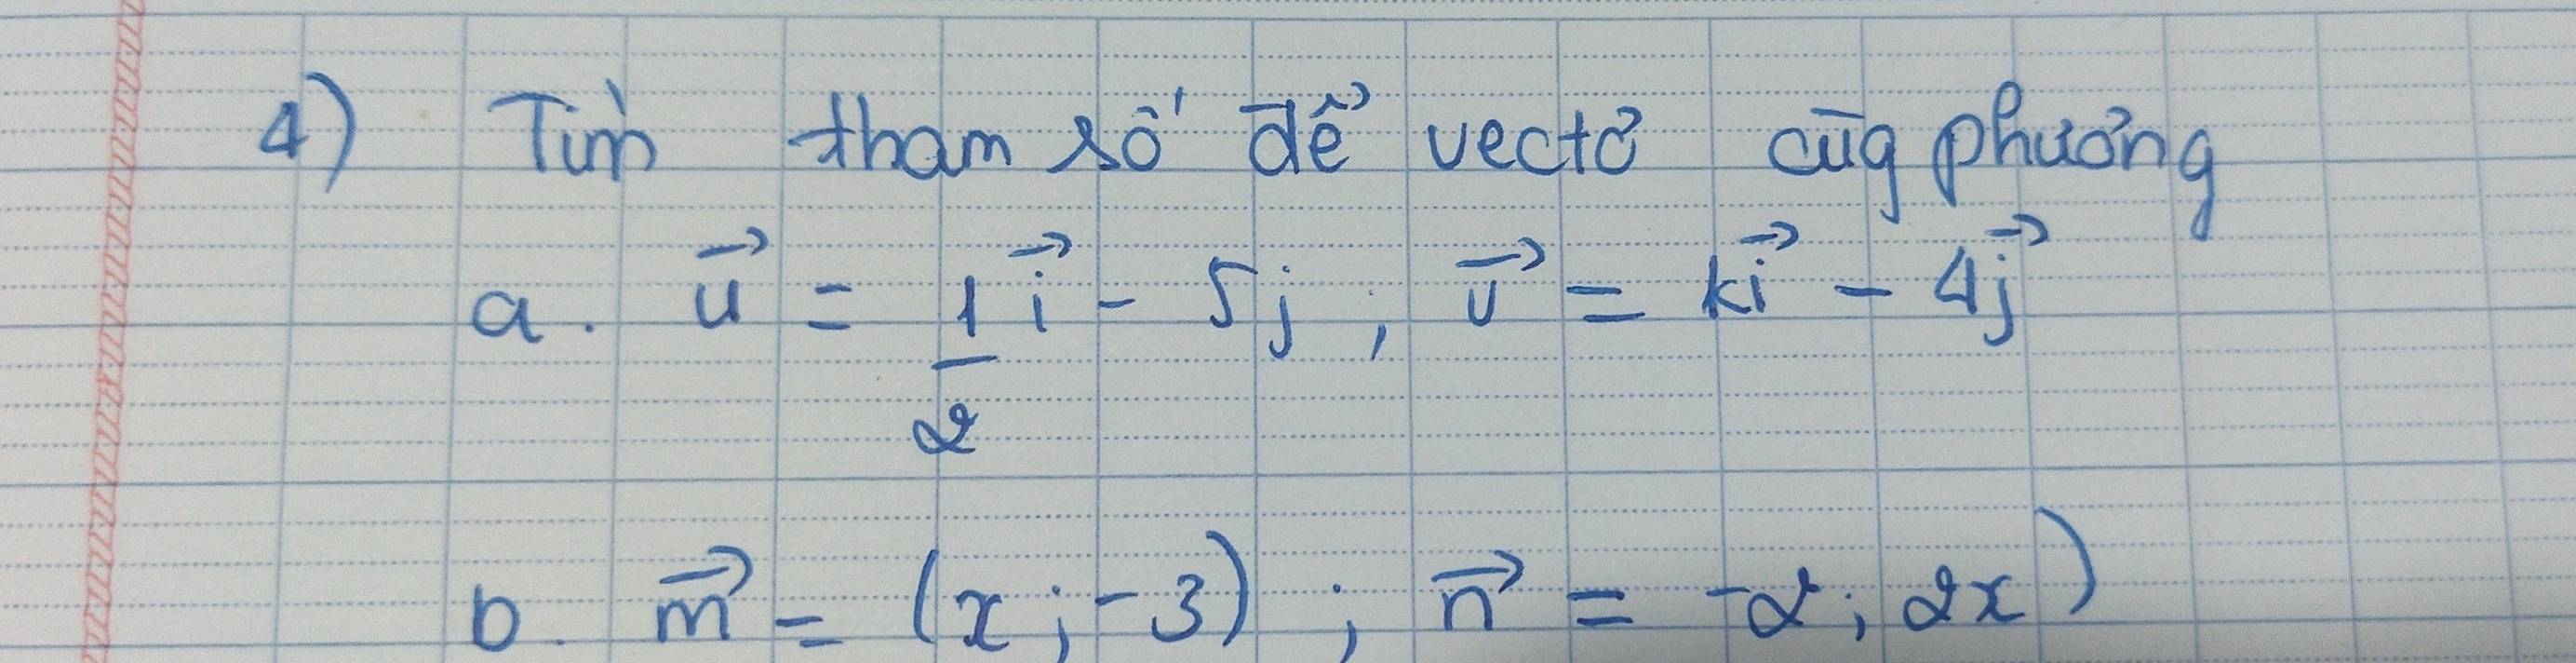 4) Tìm tham số để vectơ cũg phương
a. u⃗ = 1/2 i⃗ - 5j, v⃗ = ki⃗ - 4j⃗
b. m⃗ = (x; -3); n⃗ = -2; 2x)